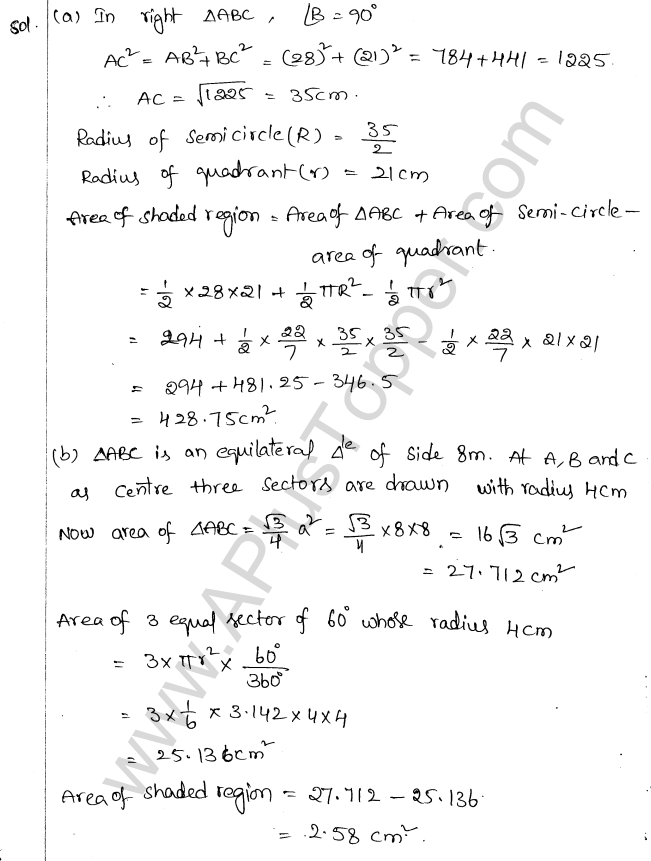 Sol. (a) In right ΔABC, ∠B = 90°
AC² = AB² + BC² = (28)² + (21)² = 784 + 441 = 1225
∴ AC = √1225 = 35cm.
Radius of semicircle (R) = 35/2
Radius of quadrant (r) = 21cm
Area of shaded region = Area of ΔABC + Area of semi-circle -
area of quadrant.
= 1/2 × 28 × 21 + 1/2 πR² - 1/2 πr²
= 294 + 1/2 × 22/7 × 35/2 × 35/2 - 1/2 × 22/7 × 21 × 21
= 294 + 481.25 - 346.5
= 428.75cm².
(b) ΔABC is an equilateral Δle of side 8m. At A, B and C
as centre three sectors are drawn with radius 4cm
Now area of ΔABC = √3/4 a² = √3/4 × 8 × 8 = 16√3 cm²
= 27.712 cm²
Area of 3 equal sector of 60° whose radius 4cm
= 3 × πr² × 60°/360°
= 3 × 1/6 × 3.142 × 4 × 4
= 25.136cm²
Area of shaded region = 27.712 - 25.136
= 2.58 cm².
www.APlusTopper.com